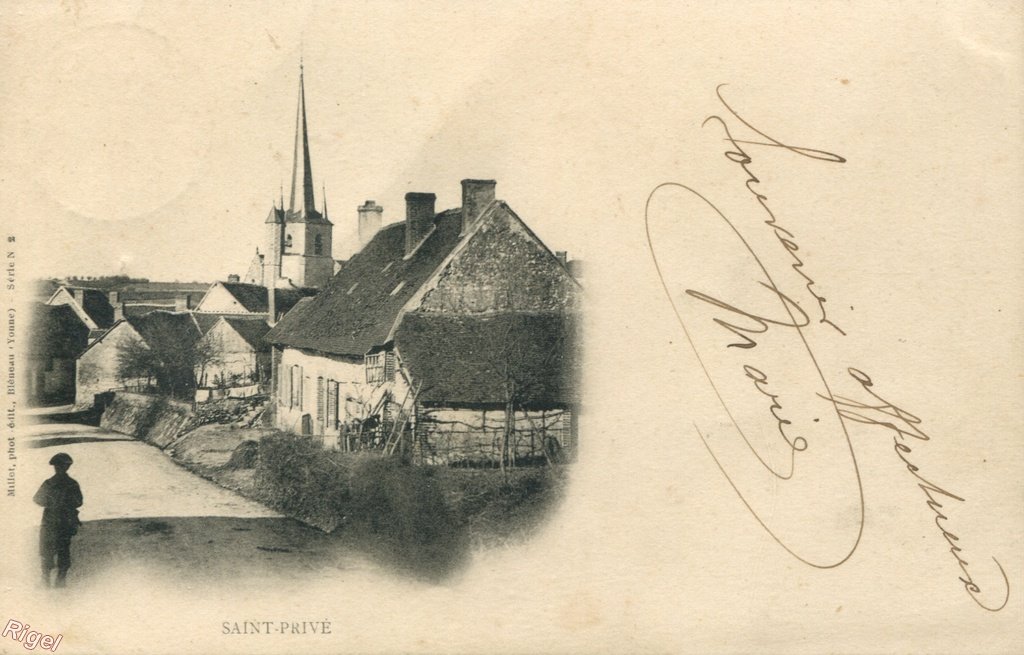 Millet, phot-édit., Bléneau (Yonne) - Série N 2
SAINT-PRIVÉ
Souvenir affectueux
Marie
Rigel